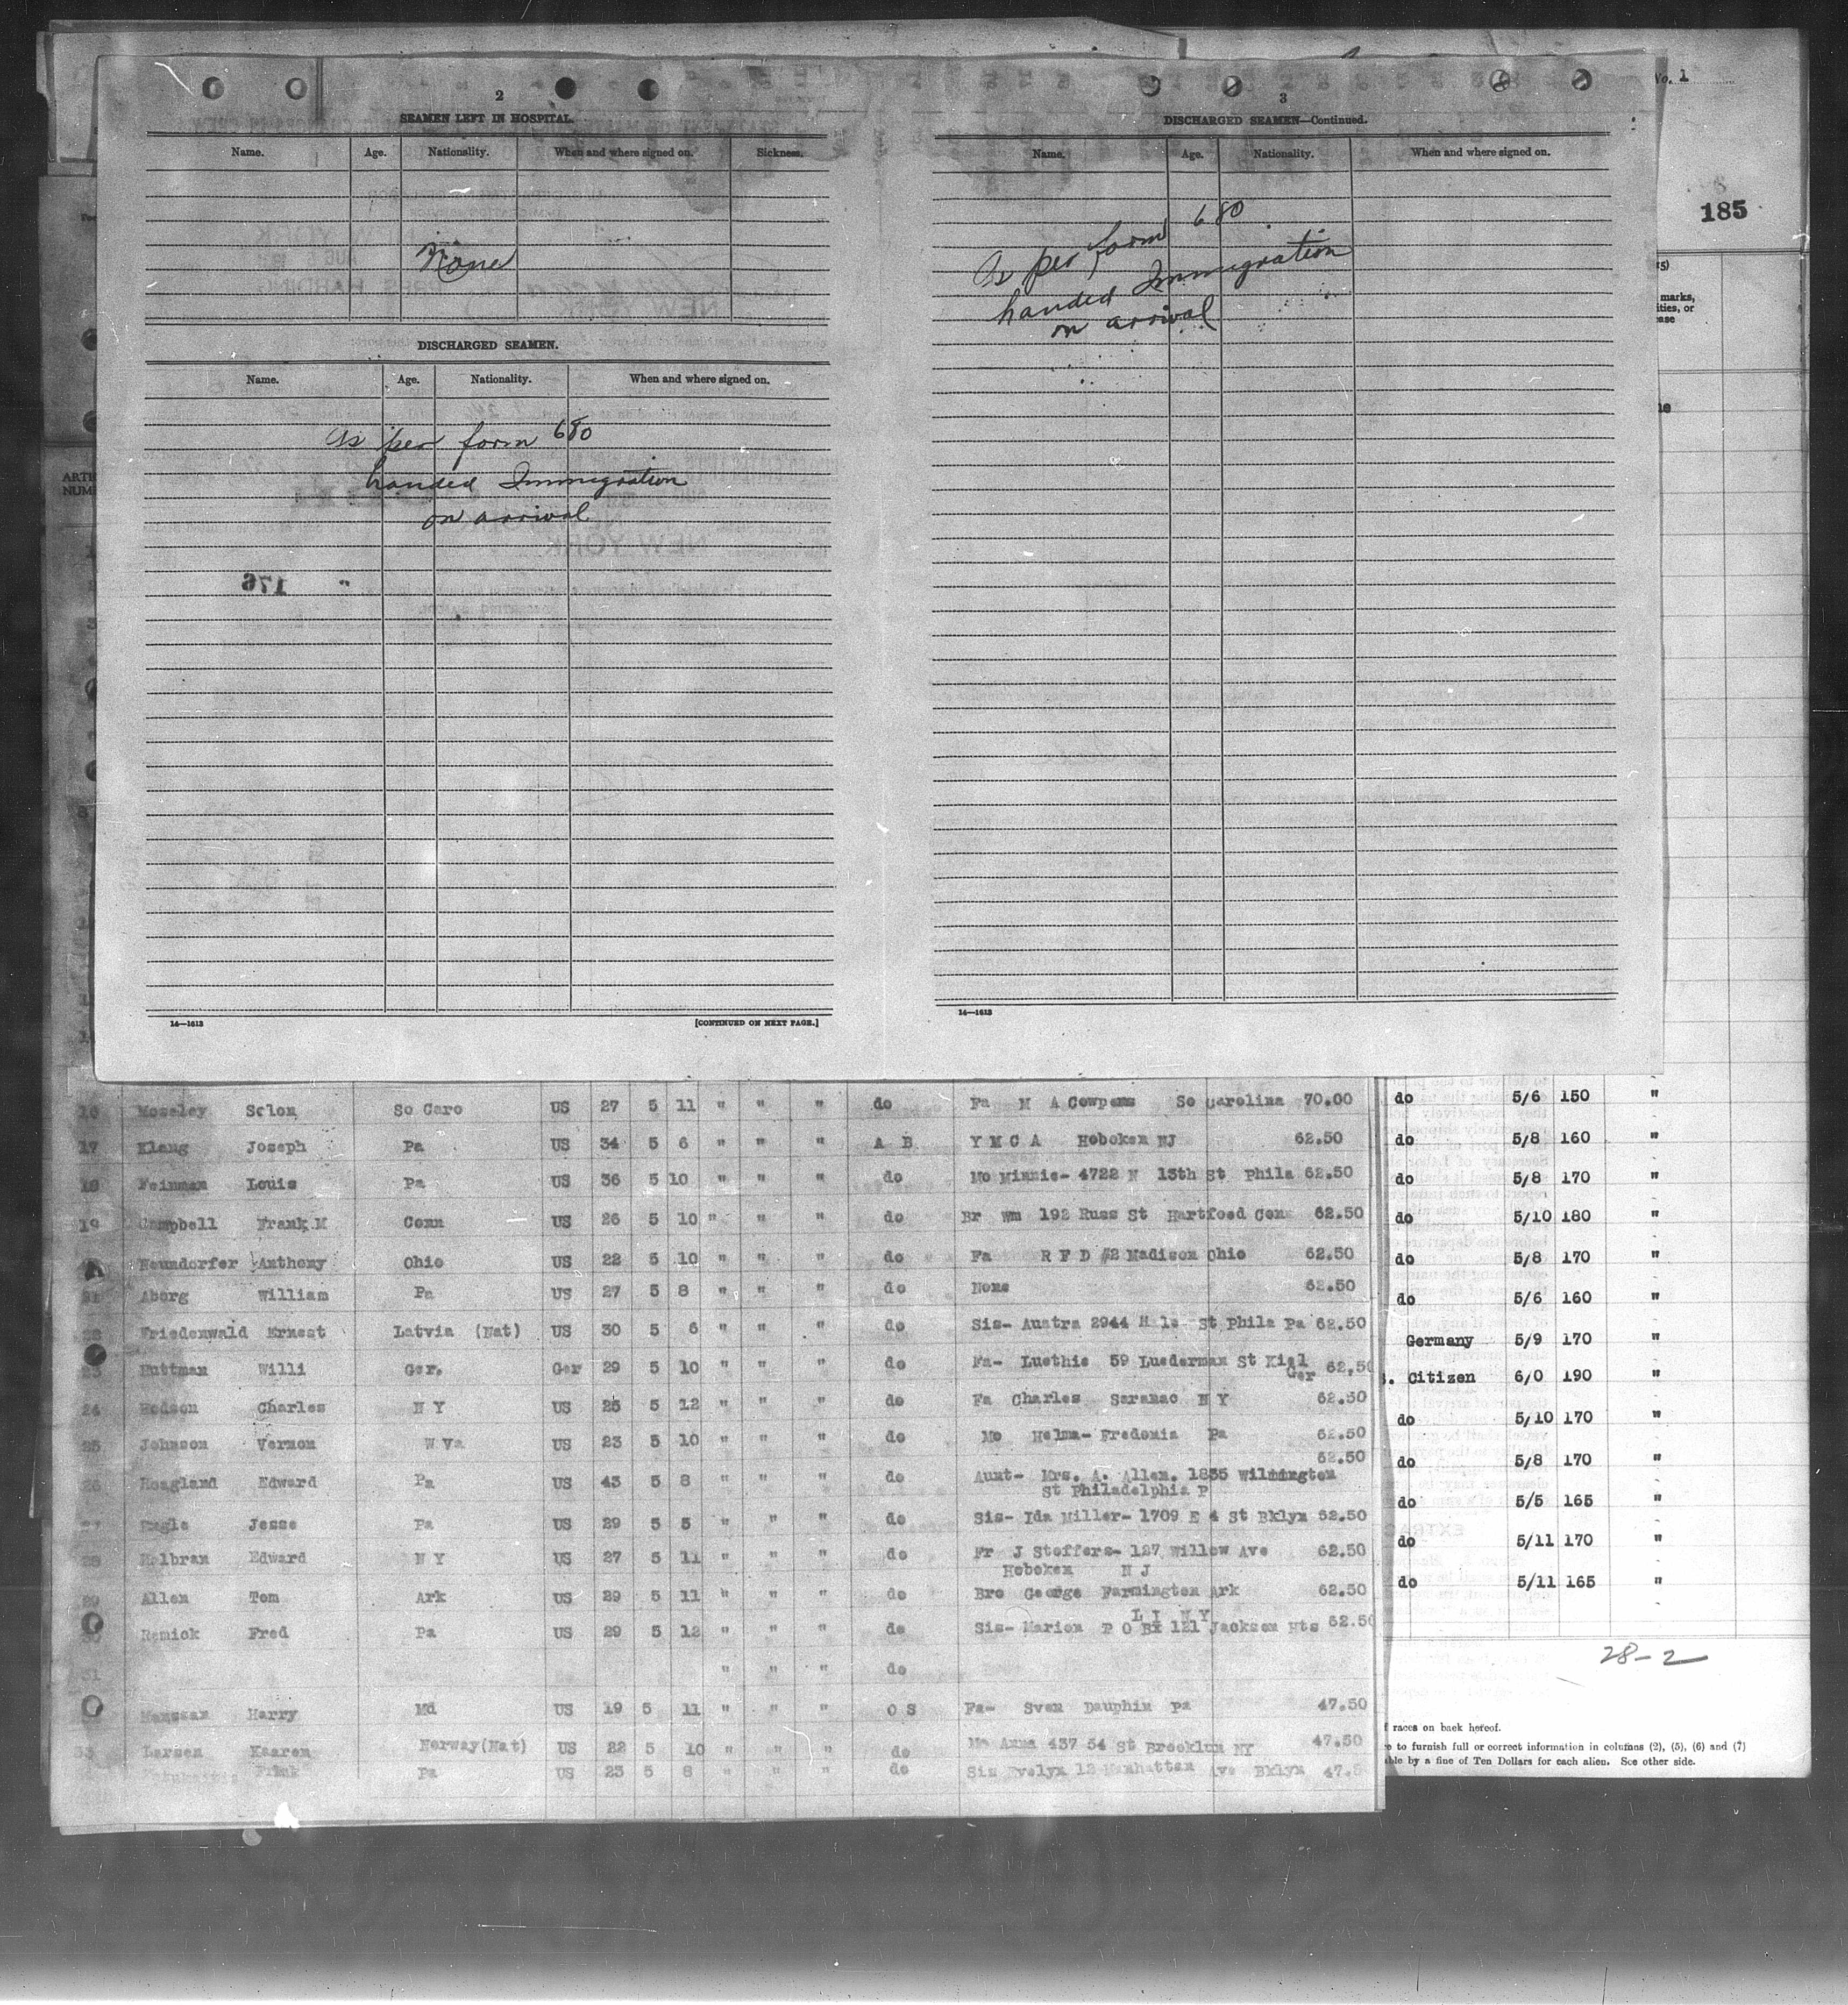 No. 1
185
2
SEAMEN LEFT IN HOSPITAL.
Name. Age. Nationality. When and where signed on. Sickness.
None
DISCHARGED SEAMEN.
Name. Age. Nationality. When and where signed on.
As per form 680
handed Immigration
on arrival
176
14—1613
[CONTINUED ON NEXT PAGE.]
3
DISCHARGED SEAMEN—Continued.
Name. Age. Nationality. When and where signed on.
As per form 680
handed Immigration
on arrival
14—1613
marks,
16 Moseley Solon So Caro US 27 5 11 " " " do Fa M A Cowpens So Carolina 70.00
17 Klang Joseph Pa US 34 5 6 " " " A B Y M C A Hoboken NJ 62.50
18 Feinman Louis Pa US 36 5 10 " " " do Mo Minnie- 4722 N 13th St Phila 62.50
19 Campbell Frank M Conn US 26 5 10 " " " do Br Wm 192 Russ St Hartfoed Conn 62.50
Neundorfer Anthony Ohio US 22 5 10 " " " do Fa R F D #2 Madison Ohio 62.50
21 Aborg William Pa US 27 5 8 " " " do None 62.50
22 Friedenwald Ernest Latvia (Nat) US 30 5 6 " " " do Sis- Austra 2944 St Phila Pa 62.50
23 Huttman Willi Ger. Ger 29 5 10 " " " do Fa- Luethie 59 Luederman St Kiel Ger 62.50
24 Hodson Charles N Y US 25 5 12 " " " do Fa Charles Saranac N Y 62.50
25 Johnson Vernon W Va US 23 5 10 " " " do Mo Helma- Fredonia Pa 62.50
26 Hoagland Edward Pa US 43 5 8 " " " do Aunt- Mrs. A. Allen. 1835 Wilmington 62.50
St Philadelphia P
Jesse Pa US 29 5 5 " " " do Sis- Ida Miller- 1709 E 4 St Bklyn 62.50
28 Edward N Y US 27 5 11 " " " do Fr J Steffers- 127 Willow Ave 62.50
Hoboken N J
29 Allen Tom Ark US 29 5 11 " " " do Bro George Farmington Ark 62.50
L I N Y
30 Remick Fred Pa US 29 5 12 " " " do Sis- Marion P O Bx 121 Jackson Hts 62.50
31 " " " do
Harry Md US 19 5 11 " " " O S Fa- Sven Dauphin Pa 47.50
33 Larsen Kaaren Norway(Nat) US 22 5 10 " " " do Mo Anna 437 54 St Brooklyn NY 47.50
Frank Pa US 23 5 8 " " " do Sis Evelyn 12 Manhattan Ave Bklyn 47.5
do 5/6 150 "
do 5/8 160 "
do 5/8 170 "
do 5/10 180 "
do 5/8 170 "
do 5/6 160 "
Germany 5/9 170 "
. Citizen 6/0 190 "
do 5/10 170 "
do 5/8 170 "
do 5/5 165 "
do 5/11 170 "
do 5/11 165 "
28-2
races on back hereof.
to furnish full or correct information in columns (2), (5), (6) and (7)
by a fine of Ten Dollars for each alien. See other side.